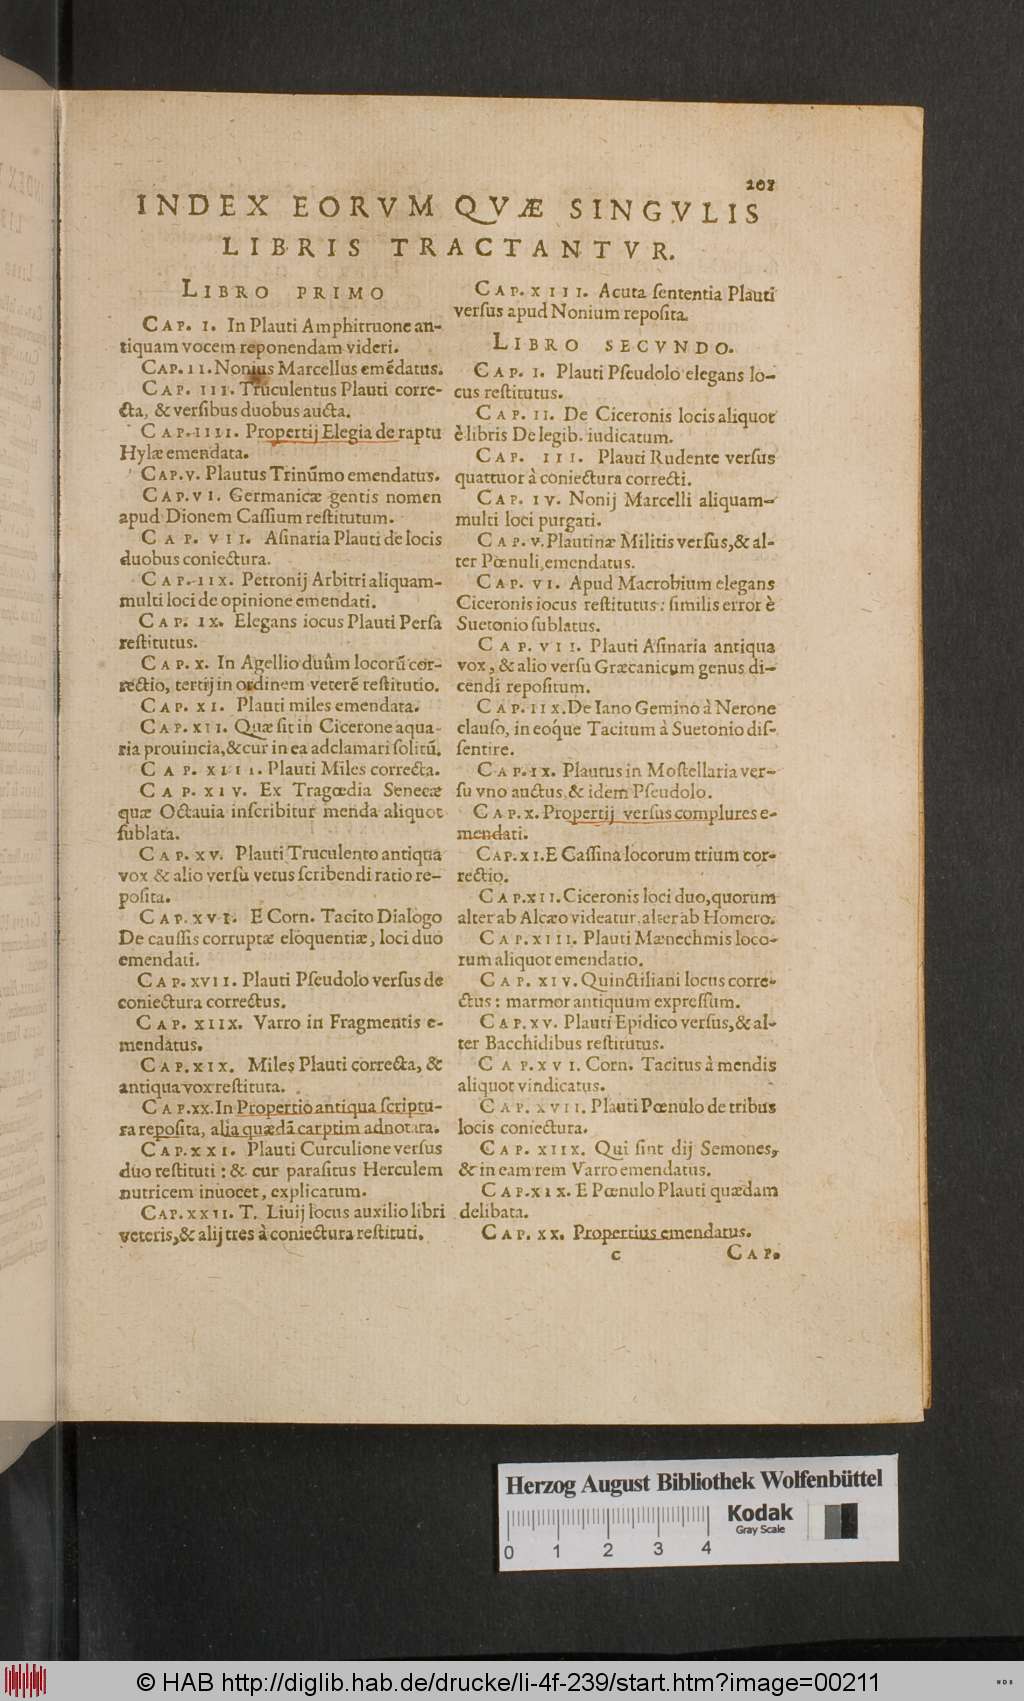 207
INDEX EORVM QVÆ SINGVLIS
LIBRIS TRACTANTVR.
LIBRO PRIMO
CAP. I. In Plauti Amphitruone an-
tiquam vocem reponendam videri.
CAP. II. Nonius Marcellus emẽdatus.
CAP. III. Truculentus Plauti corre-
cta, & versibus duobus aucta.
CAP. IIII. Propertij Elegia de raptu
Hylæ emendata.
CAP. V. Plautus Trinũmo emendatus.
CAP. VI. Germanicæ gentis nomen
apud Dionem Cassium restitutum.
CAP. VII. Asinaria Plauti de locis
duobus coniectura.
CAP. IIX. Petronij Arbitri aliquam-
multi loci de opinione emendati.
CAP. IX. Elegans iocus Plauti Persa
restitutus.
CAP. X. In Agellio duûm locorũ cor-
rectio, tertij in ordinem veterẽ restitutio.
CAP. XI. Plauti miles emendata.
CAP. XII. Quæ sit in Cicerone aqua-
ria prouincia, & cur in ea adclamari solitũ.
CAP. XIII. Plauti Miles correcta.
CAP. XIV. Ex Tragœdia Senecæ
quæ Octauia inscribitur menda aliquot
sublata.
CAP. XV. Plauti Truculento antiqua
vox & alio versu vetus scribendi ratio re-
posita.
CAP. XVI. E Corn. Tacito Dialogo
De caussis corruptæ eloquentiæ, loci duo
emendati.
CAP. XVII. Plauti Pseudolo versus de
coniectura correctus.
CAP. XIIX. Varro in Fragmentis e-
mendatus.
CAP. XIX. Miles Plauti correcta, &
antiqua vox restituta.
CAP. XX. In Propertio antiqua scriptu-
ra reposita, alia quædã carptim adnotata.
CAP. XXI. Plauti Curculione versus
duo restituti: & cur parasitus Herculem
nutricem inuocet, explicatum.
CAP. XXII. T. Liuij locus auxilio libri
veteris, & alij tres à coniectura restituti.
CAP. XIII. Acuta sententia Plauti
versus apud Nonium reposita.
LIBRO SECVNDO.
CAP. I. Plauti Pseudolo elegans lo-
cus restitutus.
CAP. II. De Ciceronis locis aliquot
è libris De legib. iudicatum.
CAP. III. Plauti Rudente versus
quattuor à coniectura correcti.
CAP. IV. Nonij Marcelli aliquam-
multi loci purgati.
CAP. V. Plautinæ Militis versus, & al-
ter Pœnuli, emendatus.
CAP. VI. Apud Macrobium elegans
Ciceronis iocus restitutus: similis error è
Suetonio sublatus.
CAP. VII. Plauti Asinaria antiqua
vox, & alio versu Græcanicum genus di-
cendi repositum.
CAP. IIX. De Iano Gemino à Nerone
clauso, in eoq́ue Tacitum à Suetonio dis-
sentire.
CAP. IX. Plautus in Mostellaria ver-
su vno auctus, & idem Pseudolo.
CAP. X. Propertij versus complures e-
mendati.
CAP. XI. E Cassina locorum trium cor-
rectio.
CAP. XII. Ciceronis loci duo, quorum
alter ab Alcæo videatur, alter ab Homero.
CAP. XIII. Plauti Mænechmis loco-
rum aliquot emendatio.
CAP. XIV. Quinctiliani locus corre-
ctus: marmor antiquum expressum.
CAP. XV. Plauti Epidico versus, & al-
ter Bacchidibus restitutus.
CAP. XVI. Corn. Tacitus à mendis
aliquot vindicatus.
CAP. XVII. Plauti Pœnulo de tribus
locis coniectura.
CAP. XIIX. Qui sint dij Semones,
& in eam rem Varro emendatus.
CAP. XIX. E Pœnulo Plauti quædam
delibata.
CAP. XX. Propertius emendatus.
c CAP.
Herzog August Bibliothek Wolfenbüttel
0 1 2 3 4
Kodak
Gray Scale
© HAB http://diglib.hab.de/drucke/li-4f-239/start.htm?image=00211